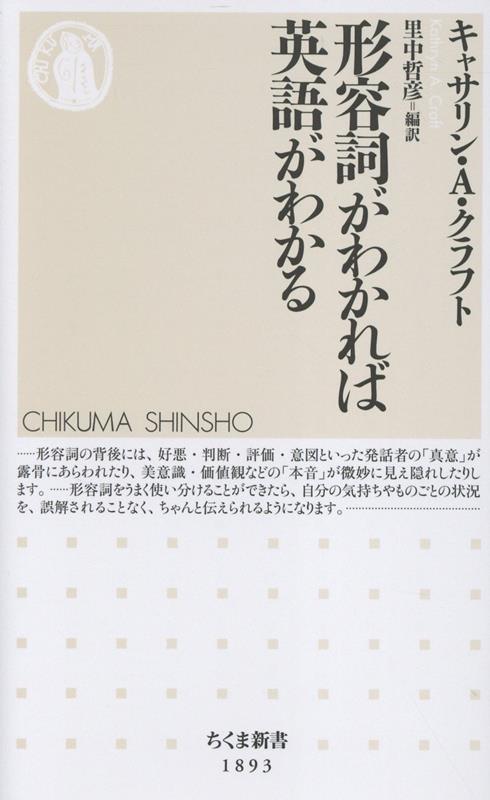 キャサリン・A・クラフト
Kathryn A. Craft
里中哲彦=編訳
形容詞がわかれば
英語がわかる
CHIKUMA SHINSHO
……形容詞の背後には、好悪・判断・評価・意図といった発話者の「真意」が
露骨にあらわれたり、美意識・価値観などの「本音」が微妙に見え隠れしたりし
ます。……形容詞をうまく使い分けることができたら、自分の気持ちやものごとの状況
を、誤解されることなく、ちゃんと伝えられるようになります。……………………………
ちくま新書
1893